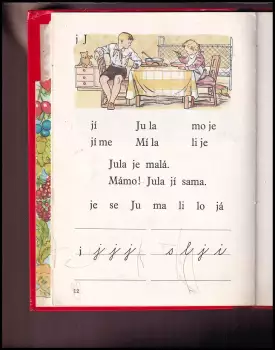 j J
jí Ju la mo je
jí me Mí la li je
Jula je malá.
Mámo! Jula jí sama.
je se Ju ma li lo já
j j j j s l j i
52